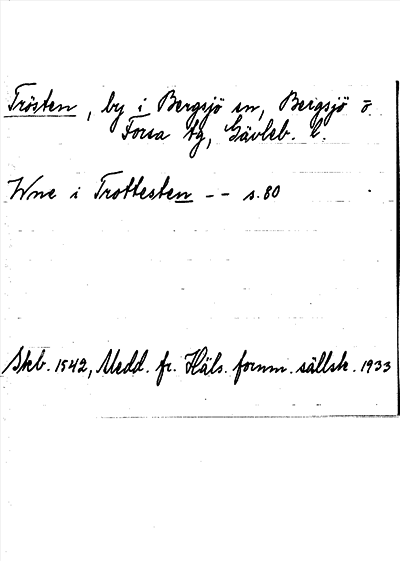 Trösten, by i Bergsjö sn, Bergsjö o.
Forsa tg, Gävleb. l.
Wne i Trottesten -- s. 80
Skb. 1542, Medd. fr. Häls. fornm. sällsk. 1933